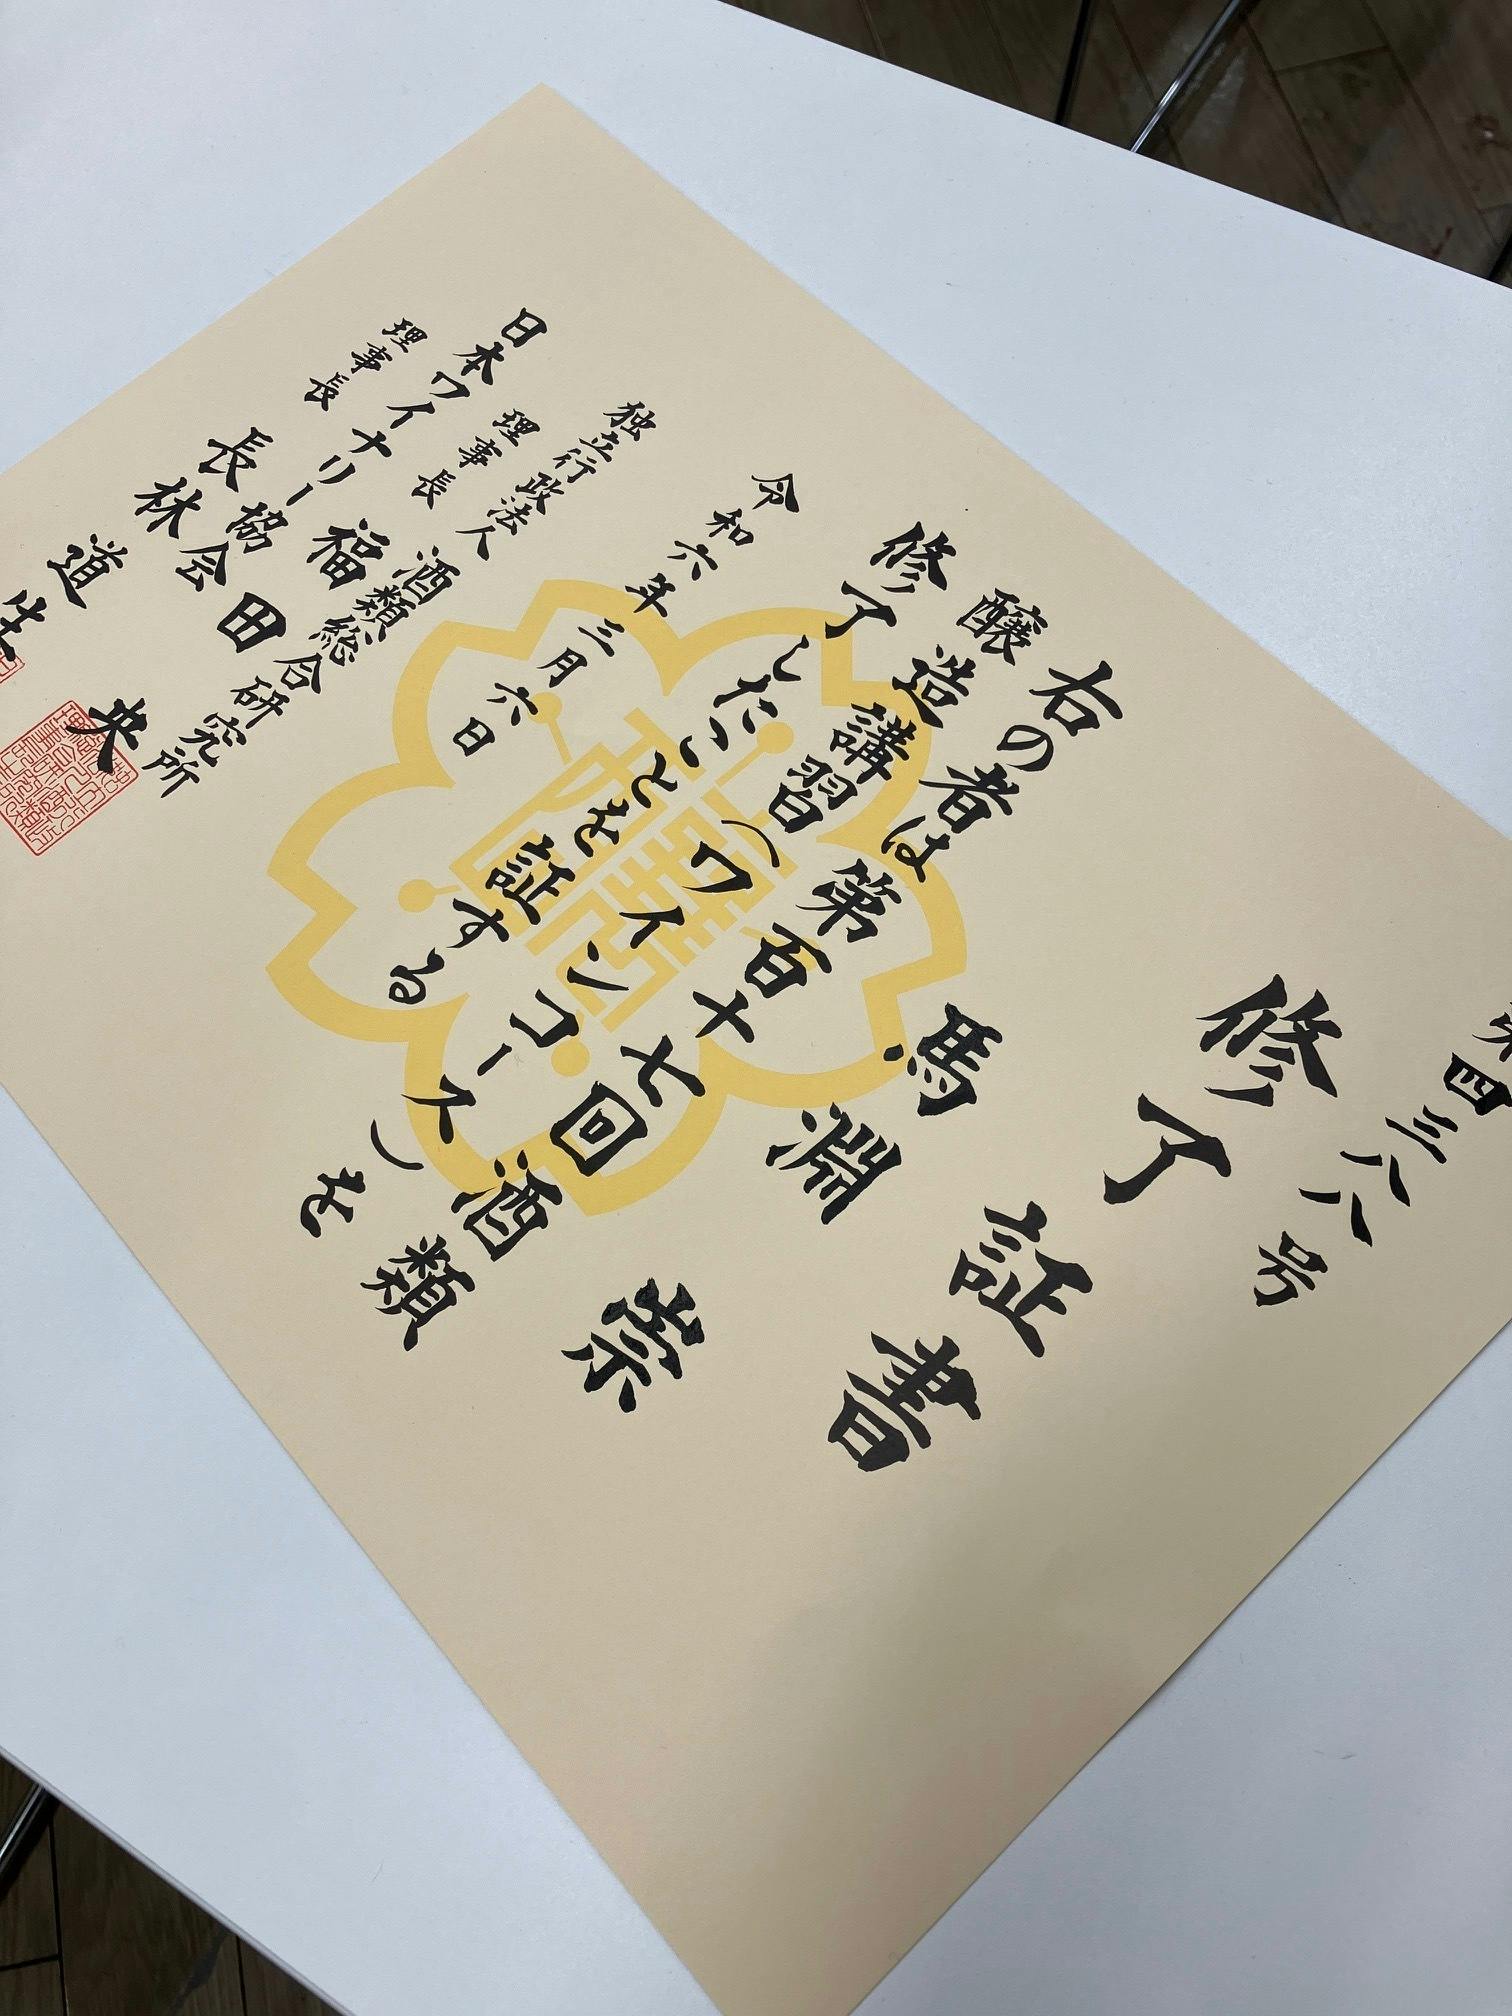 第四三八八号
修了証書
馬淵 崇
右の者は第百十七回酒類
醸造講習（ワインコース）を
修了したことを証する
令和六年三月六日
独立行政法人 酒類総合研究所
理事長 福田 央
日本ワイナリー協会
理事長 長林 道生